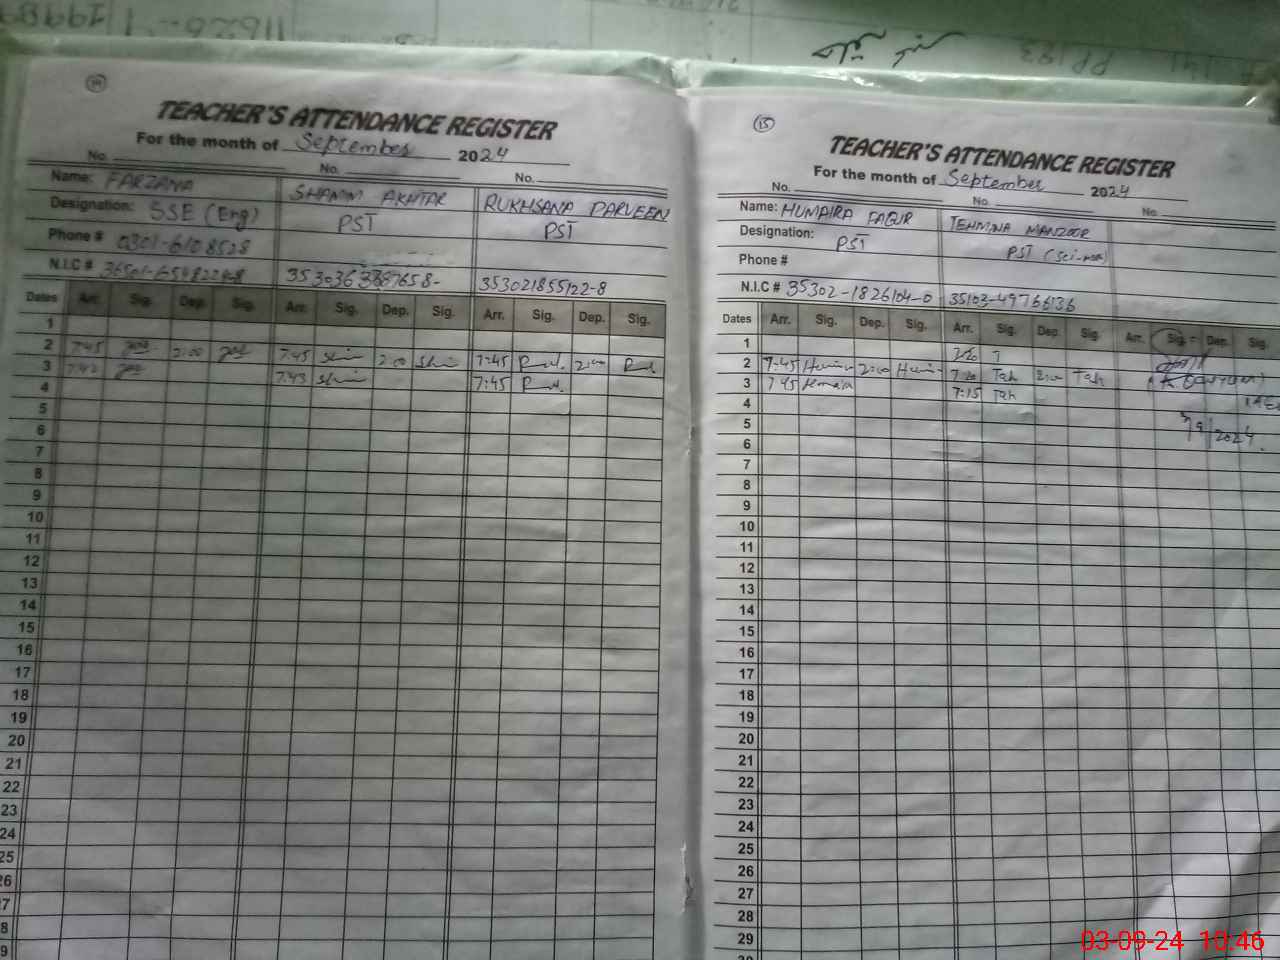 14
TEACHER'S ATTENDANCE REGISTER
For the month of September 2024
No. No. No.
Name: FARZANA SHAMIM AKHTAR RUKHSANA PARVEEN
Designation: SSE (Eng) PST PST
Phone # 0301-6108528
N.I.C # 353021855122-8
Dates Arr. Sig. Dep. Sig. Arr. Sig. Dep. Sig. Arr. Sig. Dep. Sig.
1
2 7:45 2:00 7:45 2:00 7:45 2:00
3 7:43 7:45
4
5
6
7
8
9
10
11
12
13
14
15
16
17
18
19
20
21
22
23
24
25
26
27
28
29
15
TEACHER'S ATTENDANCE REGISTER
For the month of September 2024
No. No. No.
Name: HUMAIRA TEHMINA MANZOOR
Designation: PST PST
Phone #
N.I.C # 35302-1826104-0 35103-49766136
Dates Arr. Sig. Dep. Sig. Arr. Sig. Dep. Sig. Arr. Sig. Dep. Sig.
1 7:20 T
2 7:45 2:00 7:20 Teh 2:00 Teh
3 7:45 7:15 Teh
4
5 3/9/2024
6
7
8
9
10
11
12
13
14
15
16
17
18
19
20
21
22
23
24
25
26
27
28
29
03-09-24 10:46